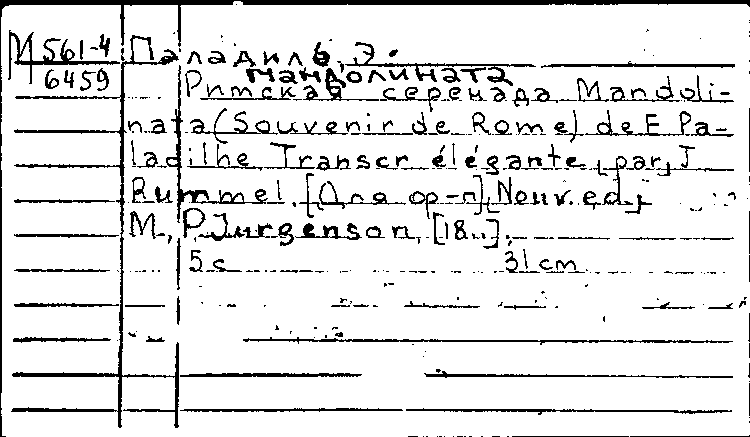 М 561-4
6459
Паладиль, Э.
мандолината
Римская серенада Mandoli-
nata (Souvenir de Rome) de E Pa-
ladilhe Transcr élégante [par] J
Rummel. [Для ф-п], [Nouv. ed.]
М., P. Jurgenson, [18..].
5 с 31 cm